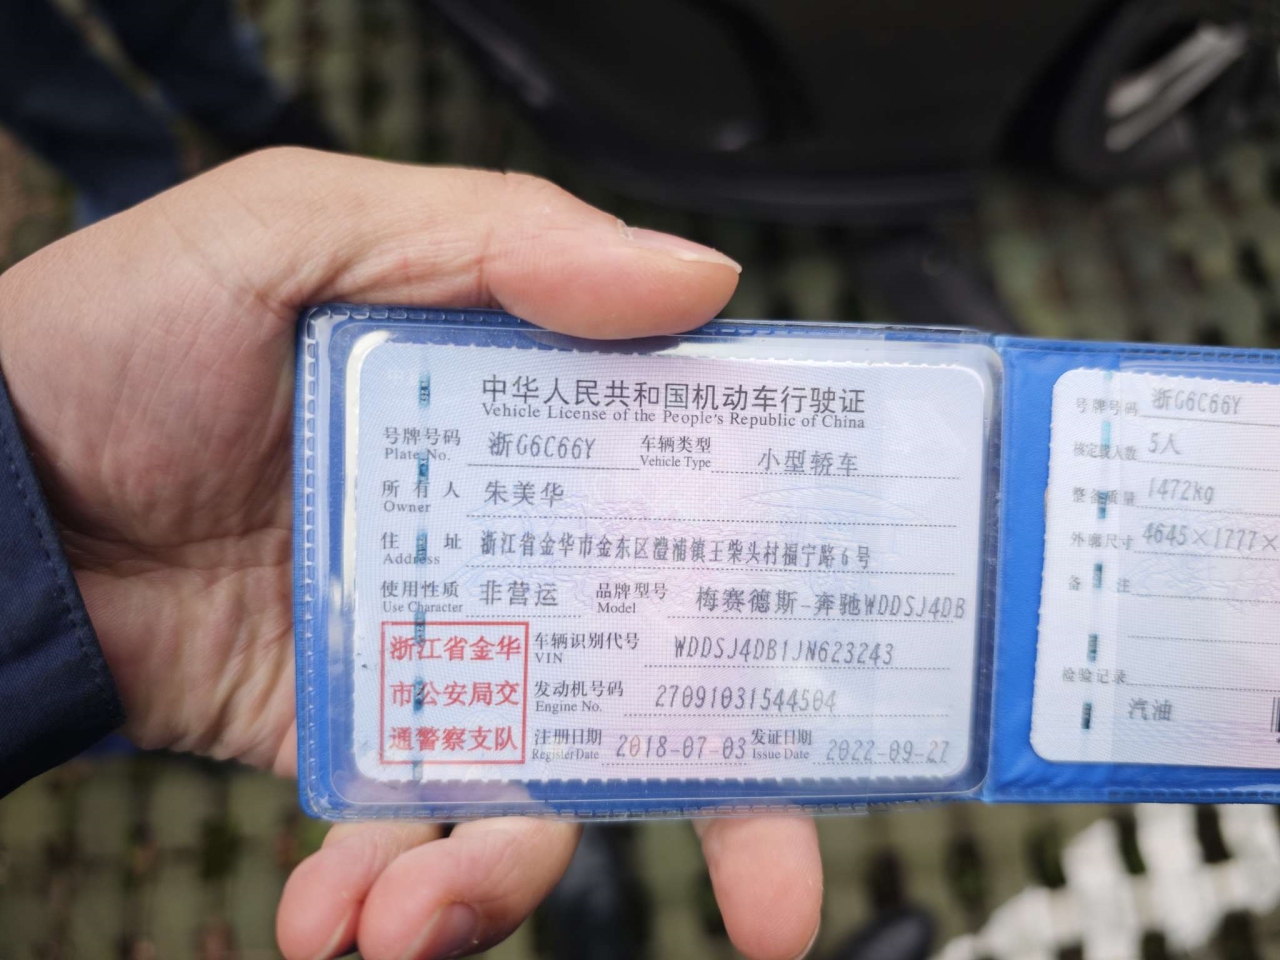 中华人民共和国机动车行驶证
Vehicle License of the People's Republic of China
号牌号码 浙G6C66Y 车辆类型 小型轿车
Plate No. Vehicle Type
所有人 朱美华
Owner
住址 浙江省金华市金东区澧浦镇王柴头村福宁路6号
Address
使用性质 非营运 品牌型号 梅赛德斯-奔驰WDDSJ4DB
Use Character Model
浙江省金华
市公安局交
通警察支队
车辆识别代号 WDDSJ4DB1JN623243
VIN
发动机号码 27091031544504
Engine No.
注册日期 2018-07-03 发证日期 2022-09-27
Register Date Issue Date
号牌号码 浙G6C66Y
核定载人数 5人
整备质量 1472kg
外廓尺寸 4645×1777×
备注
检验记录
汽油